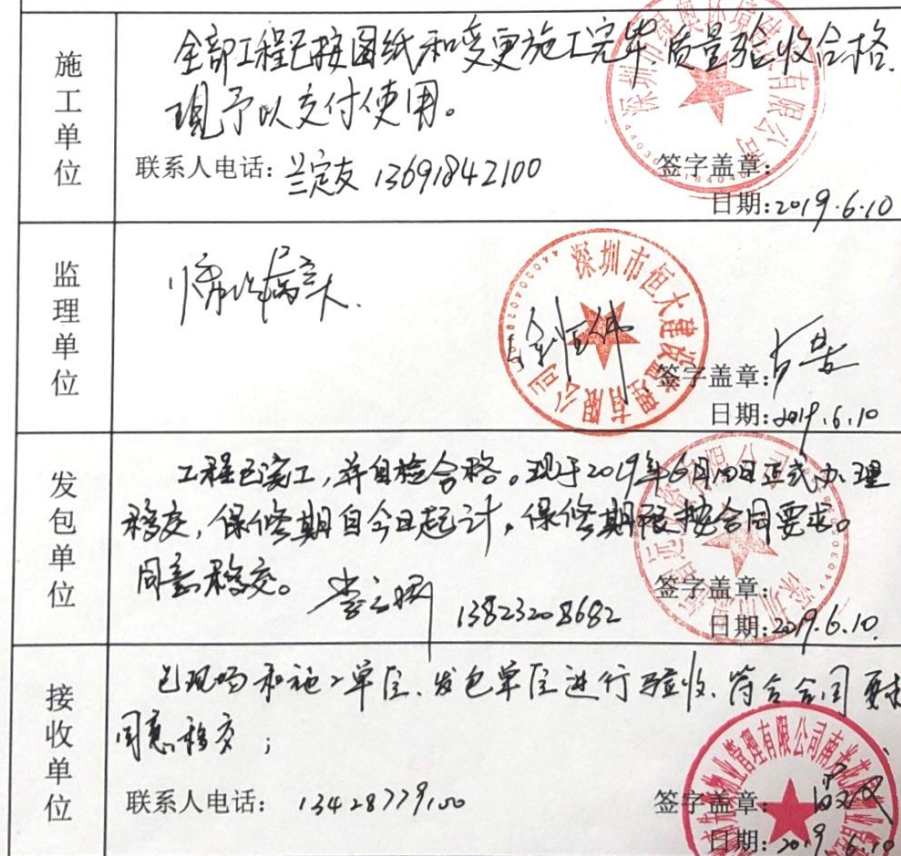 施工单位
全部工程已按图纸和变更施工完毕,质量验收合格.
现予以交付使用。
联系人电话: 兰定友 13691842100
签字盖章:
日期:2019.6.10
监理单位
深圳市恒大建设监理有限公司
签字盖章:
日期:2019.6.10
发包单位
工程已完工,并自检合格。现于2019年6月10日正式办理
移交,保修期自今日起计,保修期限按合同要求。
同意移交。
13823208682
签字盖章:
日期:2019.6.10.
接收单位
已现场和施工单位、发包单位进行验收、符合合同要求
同意移交;
联系人电话: 13428779100
签字盖章:
日期: 2019.6.10